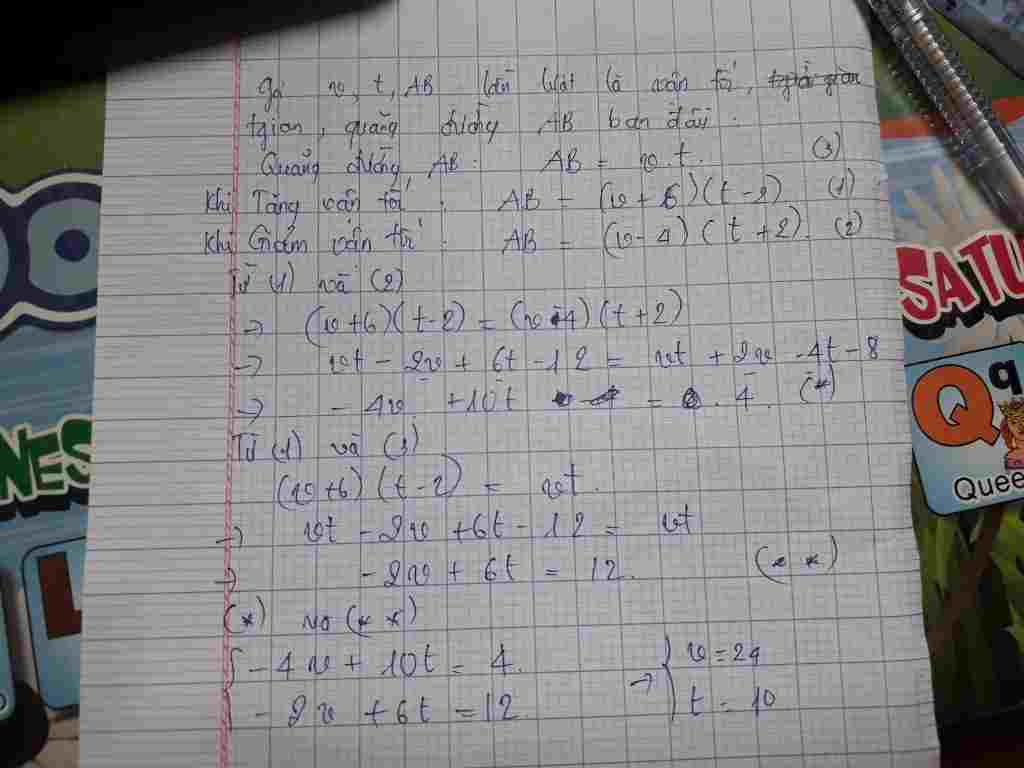 Gọi v, t, AB lần lượt là vận tốc,
tgian, quãng đường AB ban đầu.
Quãng đường AB: AB = v.t. (3)
Khi Tăng vận tốc: AB = (v+6)(t-2) (1)
Khi Giảm vận tốc: AB = (v-4)(t+2). (2)
Từ (1) và (2)
→ (v+6)(t-2) = (v-4)(t+2)
→ vt - 2v + 6t - 12 = vt + 2v - 4t - 8
→ - 4v + 10t = 4. (*)
Từ (1) và (3)
(v+6)(t-2) = vt.
→ vt - 2v + 6t - 12 = vt
→ - 2v + 6t = 12. (**)
(*) và (**)
{ - 4v + 10t = 4.
- 2v + 6t = 12.
→ { v = 24
t = 10
SATU
NES
Q q
Quee
L